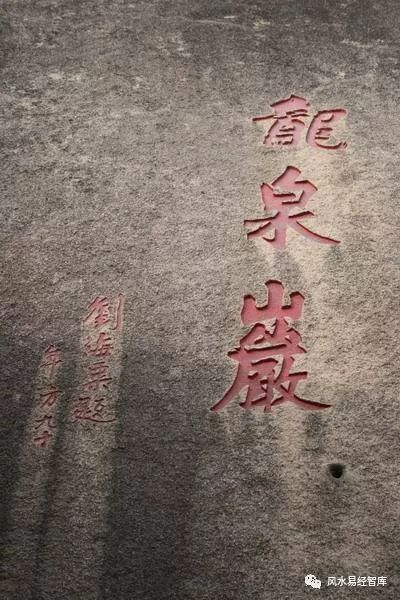 龍泉巖
劉海粟題
年方九十
风水易经智库